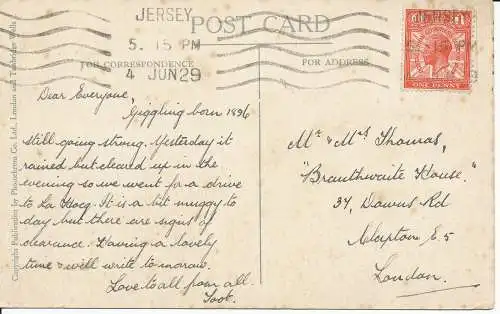 JERSEY
5. 15 PM
4 JUN 29
POST CARD
FOR CORRESPONDENCE
FOR ADDRESS
JERSEY
ONE PENNY
Copyright Publication by Photochrom Co. Ltd., London and Tunbridge Wells
Dear Everyone,
Giggling born 1896
still going strong. Yesterday it
rained but cleared up in the
evening so we went for a drive
to La Hocq. It is a bit muggy to
day but there are signs of
clearance. Having a lovely
time & will write to morrow.
Love to all from all
Toot.
Mr & Mrs Thomas,
"Braithwaite House."
34, Downs Rd
Clapton E.5
London.